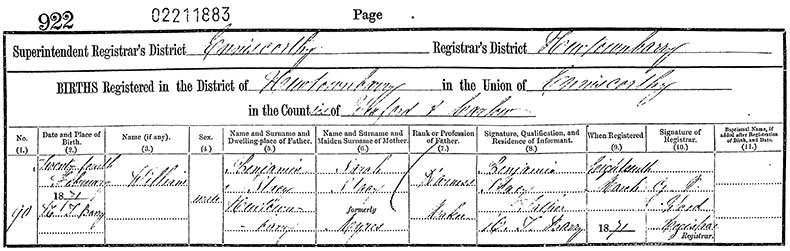 922 02211883 Page
Superintendent Registrar's District Enniscorthy Registrar's District Newtownbarry
BIRTHS Registered in the District of Newtownbarry in the Union of Enniscorthy
in the Counties of Wexford & Carlow
No. (1.) Date and Place of Birth. (2.) Name (if any). (3.) Sex. (4.) Name and Surname and Dwelling-place of Father. (5.) Name and Surname and Maiden Surname of Mother. (6.) Rank or Profession of Father. (7.) Signature, Qualification, and Residence of Informant. (8.) When Registered (9.) Signature of Registrar. (10.) Baptismal Name, if added after Registration of Birth, and Date. (11.)
90 Twenty fourth February 1871 N. T. Barry William male Benjamin Newtown-barry Sarah formerly Myres Harness Maker Benjamin Father N. T. Barry Eighteenth March 1871 Registrar.